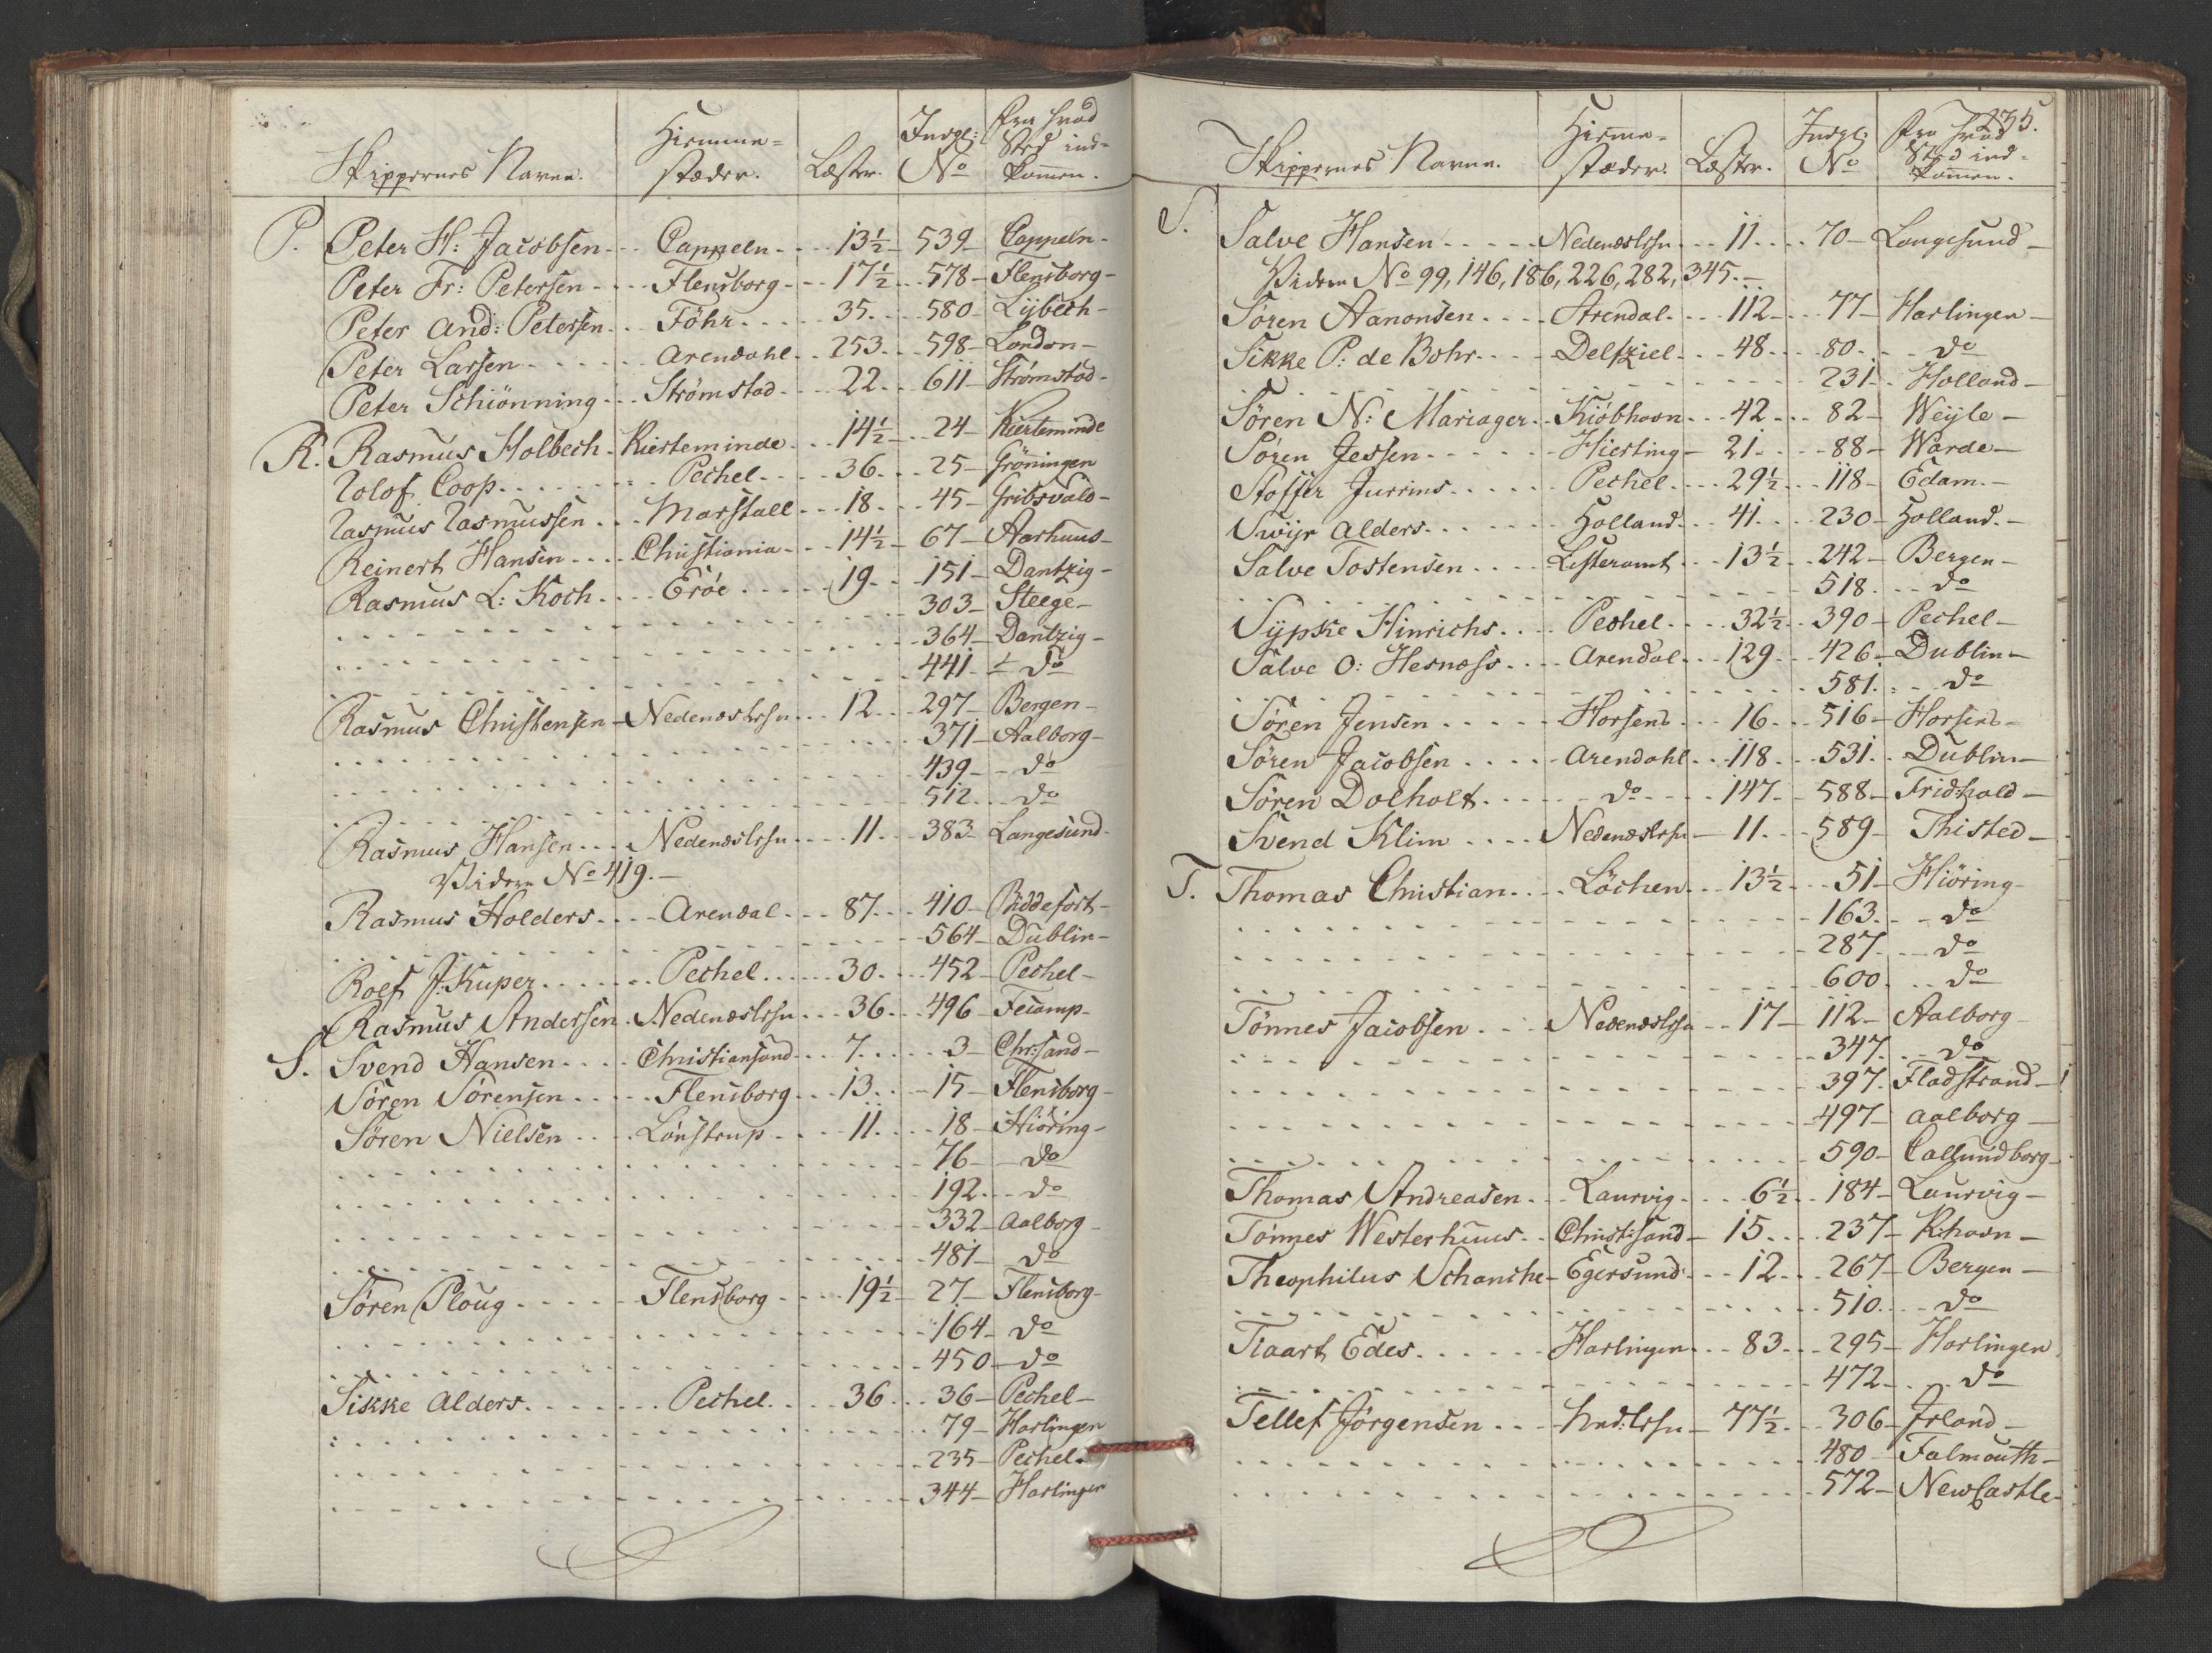 Skippernes Navne. Hiemme-stæder. Læster. Indgl: No Fra hvad Sted ind-kommen.
P. Peter H: Jacobsen - Cappeln - 13½ - 539 - Cappeln -
Peter Fr: Petersen - Flensborg - 17½ - 578 - Flensborg -
Peter And: Petersen - Föhr - 35 - 580 - Lybech -
Peter Larsen - Arendahl - 253 - 598 - London -
Peter Schiönning - Strømstad - 22 - 611 - Strømstad -
R. Rasmus Holbech - Kierteminde - 14½ - 24 - Kierteminde
Rolof Coop - Pechel - 36 - 25 - Gröningen
Rasmus Rasmussen - Marstall - 18 - 45 - Gribsvald -
Reinert Hansen - Christiania - 14½ - 67 - Aarhuus -
Rasmus L: Koch - Eröe - 19 - 151 - Dantzig -
303 - Steege -
364 - Dantzig -
441 - do
Rasmus Christensen - Nedenæslehn - 12 - 297 - Bergen -
371 - Aalborg -
439 - do
512 - do
Rasmus Hansen - Nedenæslehn - 11 - 383 - Langesund -
Videre No 419. -
Rasmus Holders - Arendal - 87 - 410 - Biddefort -
564 - Dublin -
Roelf J: Kuper - Pechel - 30 - 452 - Pechel -
Rasmus Andersen - Nedenæslehn - 36 - 496 - Fecamp -
S. Svend Hansen - Christiansand - 7 - 3 - Chr:sand -
Sören Sörensen - Flensborg - 13 - 15 - Flensborg -
Sören Nielsen - Lönstrup - 11 - 18 - Hiöring -
76 - do
192 - do
332 - Aalborg -
481 - do
Sören Ploug - Flensborg - 19½ - 27 - Flensborg -
164 - do
450 - do
Sikke Alders - Pechel - 36 - 36 - Pechel -
79 - Harlingen
235 - Pechel -
344 - Harlingen
235.
Skippernes Navne. Hieme-stæder. Læster. Indgl: No Fra hvad Sted ind-kommen.
S. Salve Hansen - Nedenæslehn - 11 - 70 - Langesund -
Videre No 99, 146, 186, 226, 282, 345. -
Sören Aanonsen - Arendal - 112 - 77 - Harlingen -
Sikke P: de Bohr - Delfziel - 48 - 80 - do
231 - Holland -
Sören N: Mariager - Kiöbhavn - 42 - 82 - Weyle -
Sören Jessen - Hierting - 21 - 88 - Warde -
Stoffer Jurrins - Pechel - 29½ - 118 - Edam. -
Swijr Alders - Holland - 41 - 230 - Holland. -
Salve Tostensen - Listeramt - 13½ - 242 - Bergen -
518 - do
Sypke Hinrichs - Pechel - 32½ - 390 - Pechel -
Salve O: Hesnæss - Arendal - 129 - 426 - Dublin -
581 - do
Sören Jensen - Horsens - 16 - 516 - Horsens -
Sören Jacobsen - Arendahl - 118 - 531 - Dublin -
Sören Dolholt - do - 147 - 588 - Fridrhald -
Svend Klim - Nedenæslehn - 11 - 589 - Thisted -
T. Thomas Christian - Löchen - 13½ - 51 - Hiöring -
163 - do
287 - do
600 - do
Tönnes Jacobsen - Nedenæslehn - 17 - 112 - Aalborg -
347 - do
397 - Fladstrand -
497 - Aalborg -
590 - Callundborg -
Thomas Andreasen - Laurvig - 6½ - 184 - Laurvig -
Tönnes Westerhuus - Christ:sand - 15 - 237 - K:havn -
Theophilus Schanche - Egersund - 12 - 267 - Bergen -
510 - do
Tiaart Edes - Harlingen - 83 - 295 - Harlingen
472 - do
Tellef Jörgensen - Ned:lehn - 77½ - 306 - Irland -
480 - Falmouth -
572 - NewCastle -